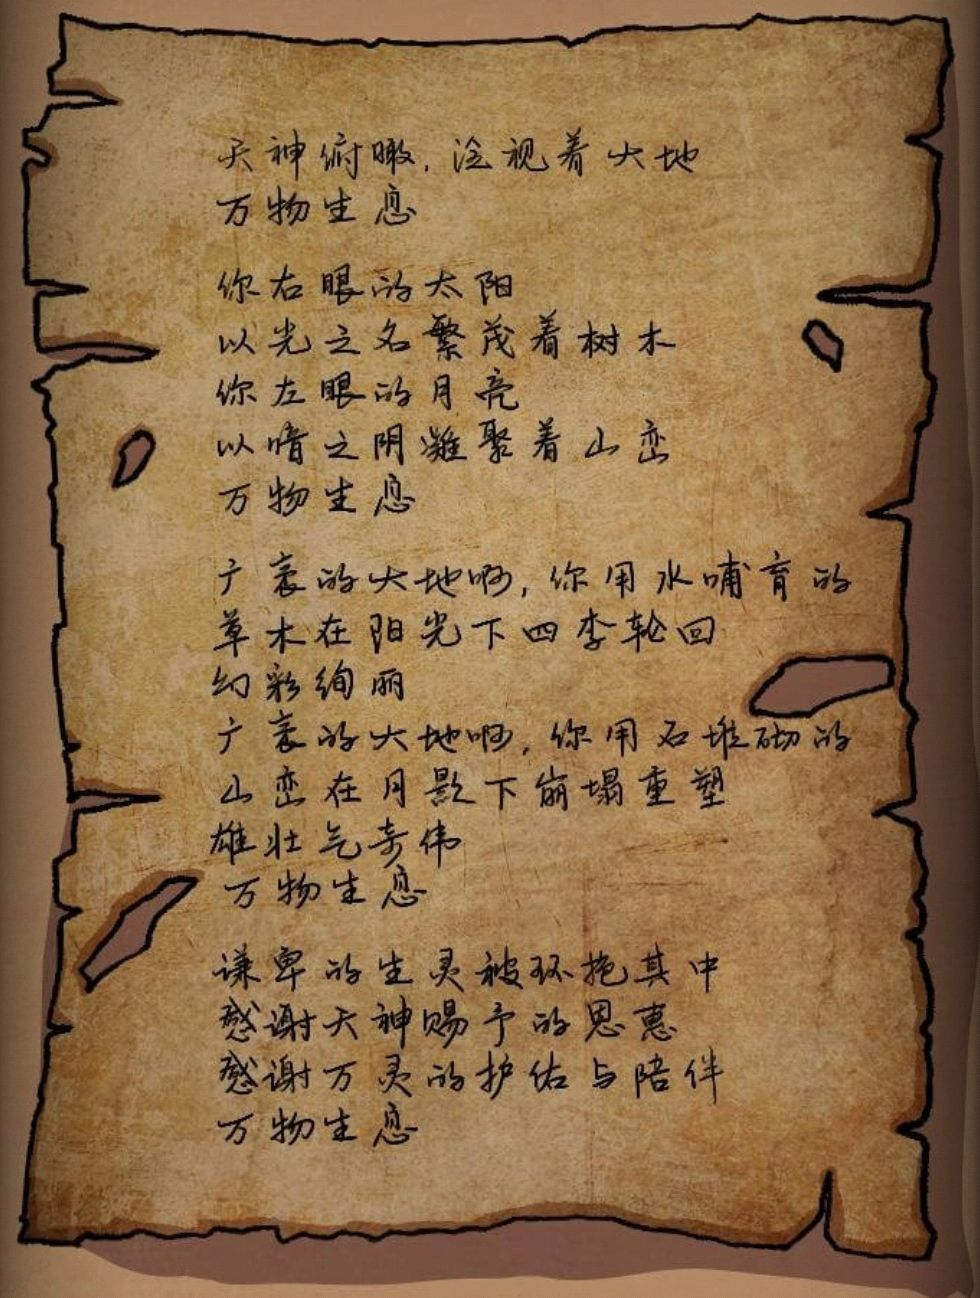 天神俯瞰，注视着大地
万物生息
你右眼的太阳
以光之名繁茂着树木
你左眼的月亮
以暗之阴凝聚着山峦
万物生息
广袤的大地啊，你用水哺育的
草木在阳光下四季轮回
幻彩绚丽
广袤的大地啊，你用石堆砌的
山峦在月影下崩塌重塑
雄壮气奇伟
万物生息
谦卑的生灵被环抱其中
感谢天神赐予的恩惠
感谢万灵的护佑与陪伴
万物生息